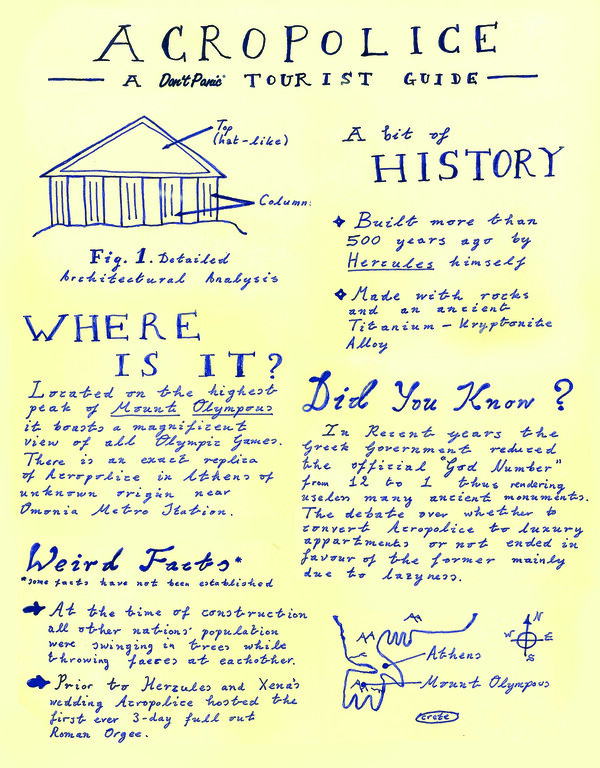 ACROPOLICE
A Don't Panic TOURIST GUIDE
Top
(hat-like)
Column:
Fig. 1. Detailed
Architectural Analysis
A bit of
HISTORY
Built more than
500 years ago by
Hercules himself
Made with rocks
and an ancient
Titanium - Kryptonite
Alloy
WHERE
IS IT?
Located on the highest
peak of Mount Olympous
it boasts a magnificent
view of all Olympic Games.
There is an exact replica
of Acropolice in Athens of
unknown origin near
Omonia Metro Station.
Did You Know?
In Recent years the
Greek Government reduced
the official "God Number"
from 12 to 1 thus rendering
useless many ancient monuments.
The debate over whether to
convert Acropolice to luxury
appartments or not ended in
favour of the former mainly
due to lazyness.
Weird Facts*
*some facts have not been established
At the time of construction
all other nations' population
were swinging in trees while
throwing faeces at eachother.
Prior to Herzules and Xena's
wedding Acropolice hosted the
first ever 3-day full out
Roman Orgee.
N
W
E
S
Athens
Mount Olympous
crete